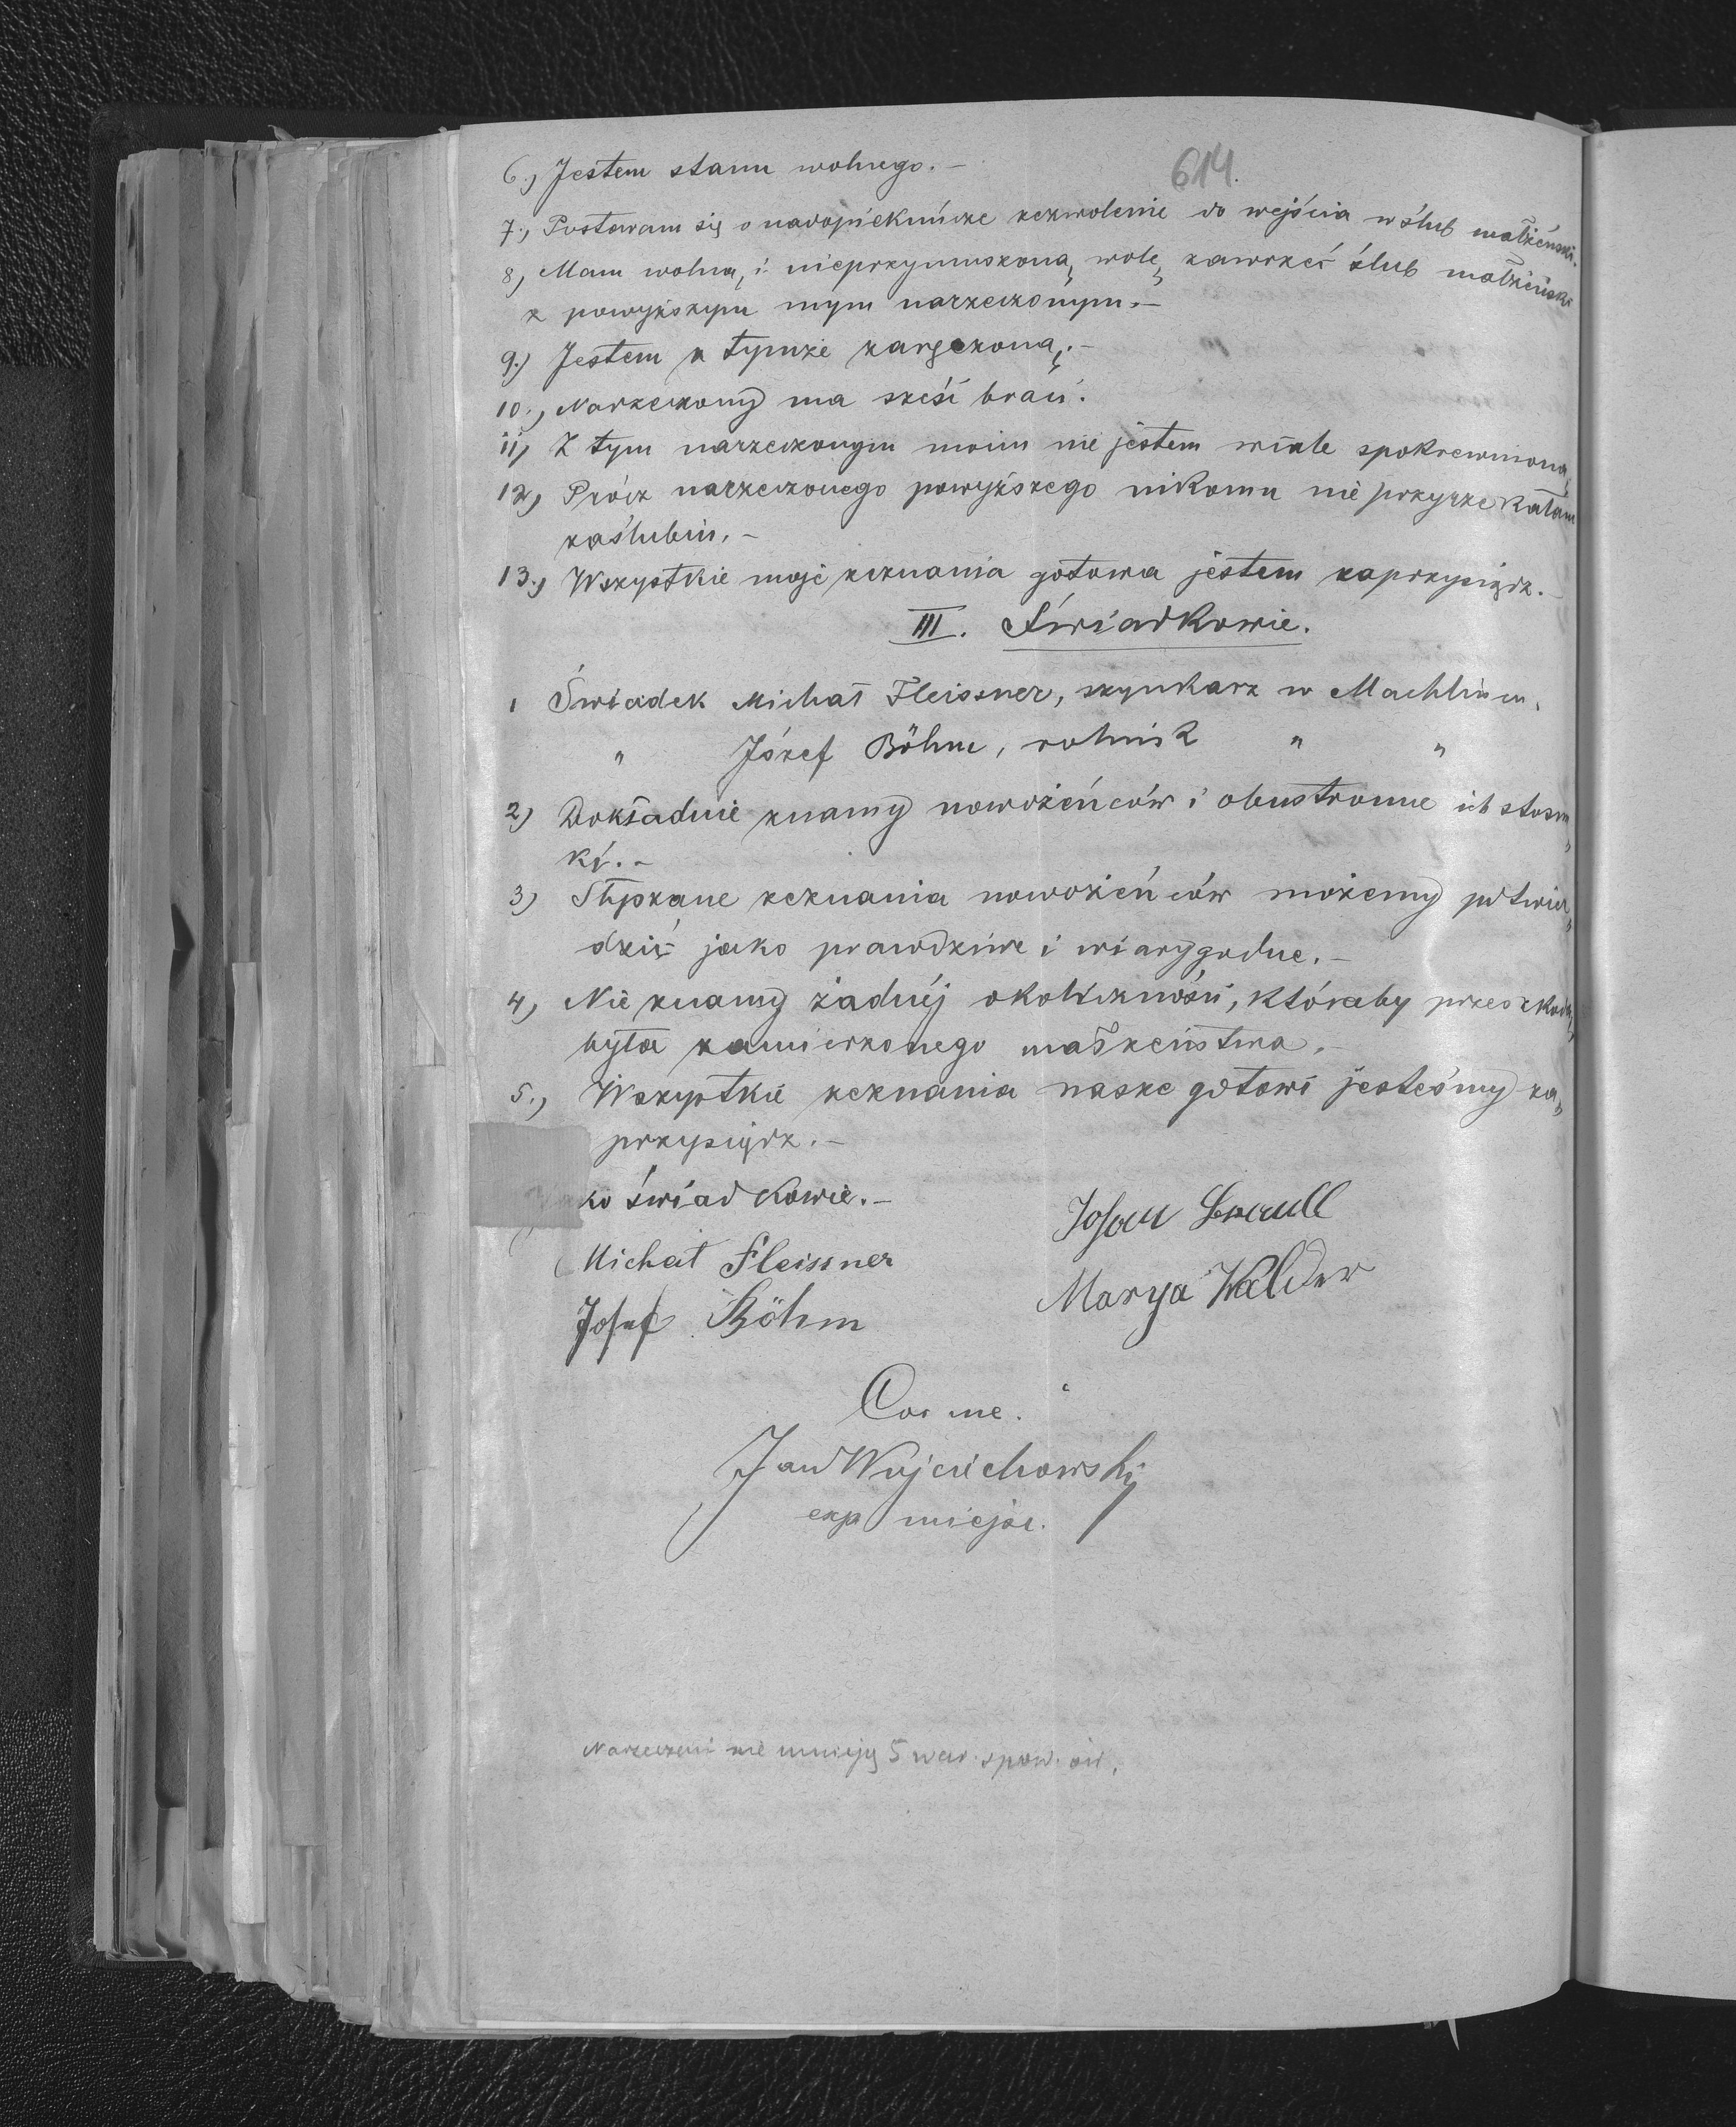 614.
6.) Jestem stanu wolnego. –
7.) Postaram się o nadopiekuńcze zezwolenie do wejścia w ślub małżeński.
8) Mam wolną i nieprzymuszoną wolę zawrzeć ślub małżeński
z powyższym mym narzeczonym. –
9.) Jestem z tymże zaręczoną. –
10.) Narzeczony ma sześć braci.
11) Z tym narzeczonym moim nie jestem wcale spokrewnioną
12) Prócz narzeczonego powyższego nikomu nie przyrzekałam
zaślubin. –
13.) Wszystkie moje zeznania gotowa jestem zaprzysiądz. –
III. Świadkowie.
1 Świadek Michał Fleissner, szynkarz w Machlińcu.
„ Józef Böhm, rolnik „ „
2) Dokładnie znamy nowożeńców i obustronne ich stosun„
ki. –
3) Słyszane zeznania nowożeńców możemy potwier„
dzić jako prawdziwe i wiarygodne. –
4) Nie znamy żadnéj okoliczności, któraby przeszkodą
była zamierzonego małżeństwa. –
5.) Wszystkie zeznania nasze gotowi jesteśmy za„
przysiądz. –
ko świadkowie. –
Michał Fleissner
Josef Böhm
Johan
Marya Walder
Cor me.
Jan Wojciechowski
exp miejsc.
Narzeczeni nie umieją 5 war. spow. św.